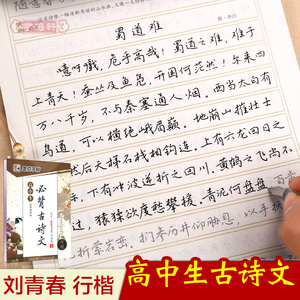 蜀道难
唐·李白
噫吁嚱，危乎高哉！蜀道之难，难于
上青天！蚕丛及鱼凫，开国何茫然！尔来四
万八千岁，不与秦塞通人烟。西当太白有
鸟道，可以横绝峨眉巅。地崩山摧壮士
然后天梯石栈相钩连。上有六龙回日之
下有冲波逆折之回川。黄鹤之飞尚不
过，猿猱欲度愁攀援。青泥何盘盘，百步
折萦岩峦。扪参历井仰胁息，以手抚
高中生
必背古
诗文
刘青春 行楷
高中生古诗文